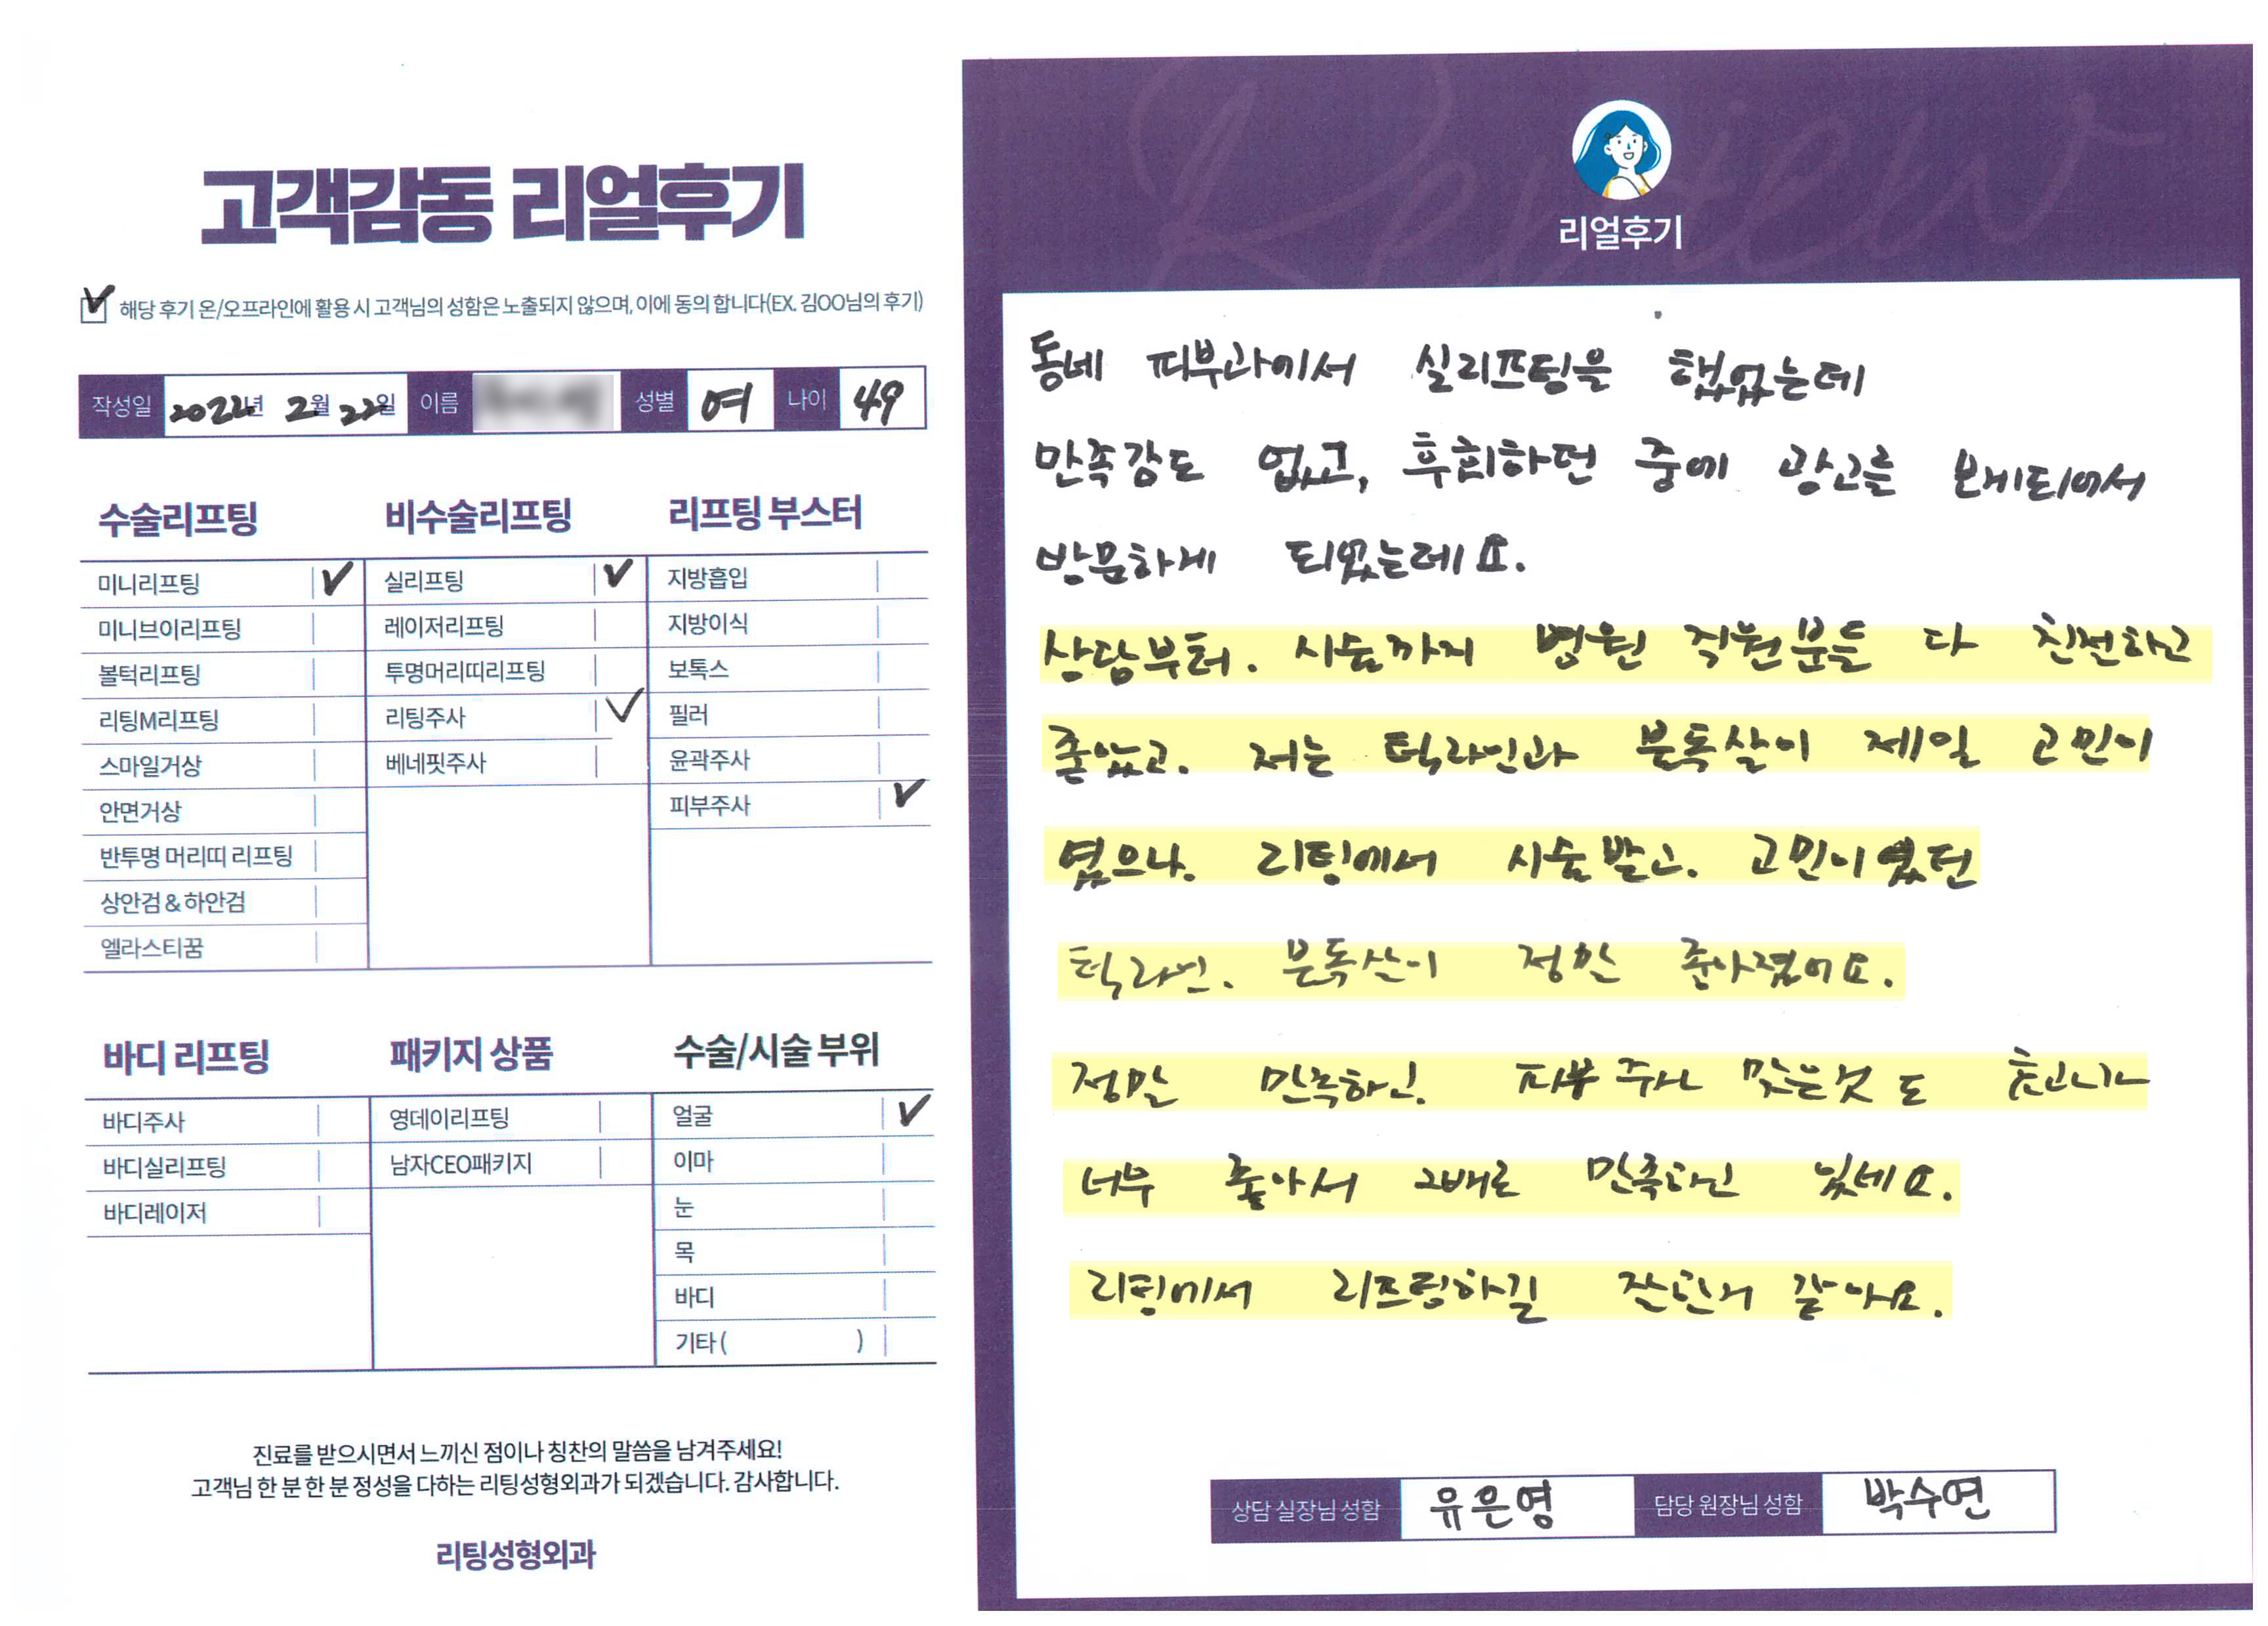 고객감동 리얼후기
해당 후기 온/오프라인에 활용 시 고객님의 성함은 노출되지 않으며, 이에 동의 합니다(EX. 김OO님의 후기)
작성일 2022년 2월 22일 이름 성별 여 나이 49
수술리프팅
미니리프팅
미니브이리프팅
볼턱리프팅
리팅M리프팅
스마일거상
안면거상
반투명 머리띠 리프팅
상안검 & 하안검
엘라스티꿈
비수술리프팅
실리프팅
레이저리프팅
투명머리띠리프팅
리팅주사
베네핏주사
리프팅 부스터
지방흡입
지방이식
보톡스
필러
윤곽주사
피부주사
바디 리프팅
바디주사
바디실리프팅
바디레이저
패키지 상품
영데이리프팅
남자CEO패키지
수술/시술 부위
얼굴
이마
눈
목
바디
기타 ( )
진료를 받으시면서 느끼신 점이나 칭찬의 말씀을 남겨주세요!
고객님 한 분 한 분 정성을 다하는 리팅성형외과가 되겠습니다. 감사합니다.
리팅성형외과
Review
리얼후기
동네 피부과에서 실리프팅을 했었는데
만족감도 없고, 후회하던 중에 광고를 보게되어서
방문하게 되었는데요.
상담부터. 시술까지 병원 직원분들 다 친절하고
좋았고. 저는 턱라인과 분독살이 제일 고민이
였으나. 리팅에서 시술받고. 고민이였던
턱라인. 분독살이 정말 좋아졌어요.
정말 만족하고. 피부 주사 맞은것도
너무 좋아서 2배로 만족하고 있네요.
리팅에서 리프팅하길 잘한거 같아요.
상담 실장님 성함 유은영 담당 원장님 성함 박수연